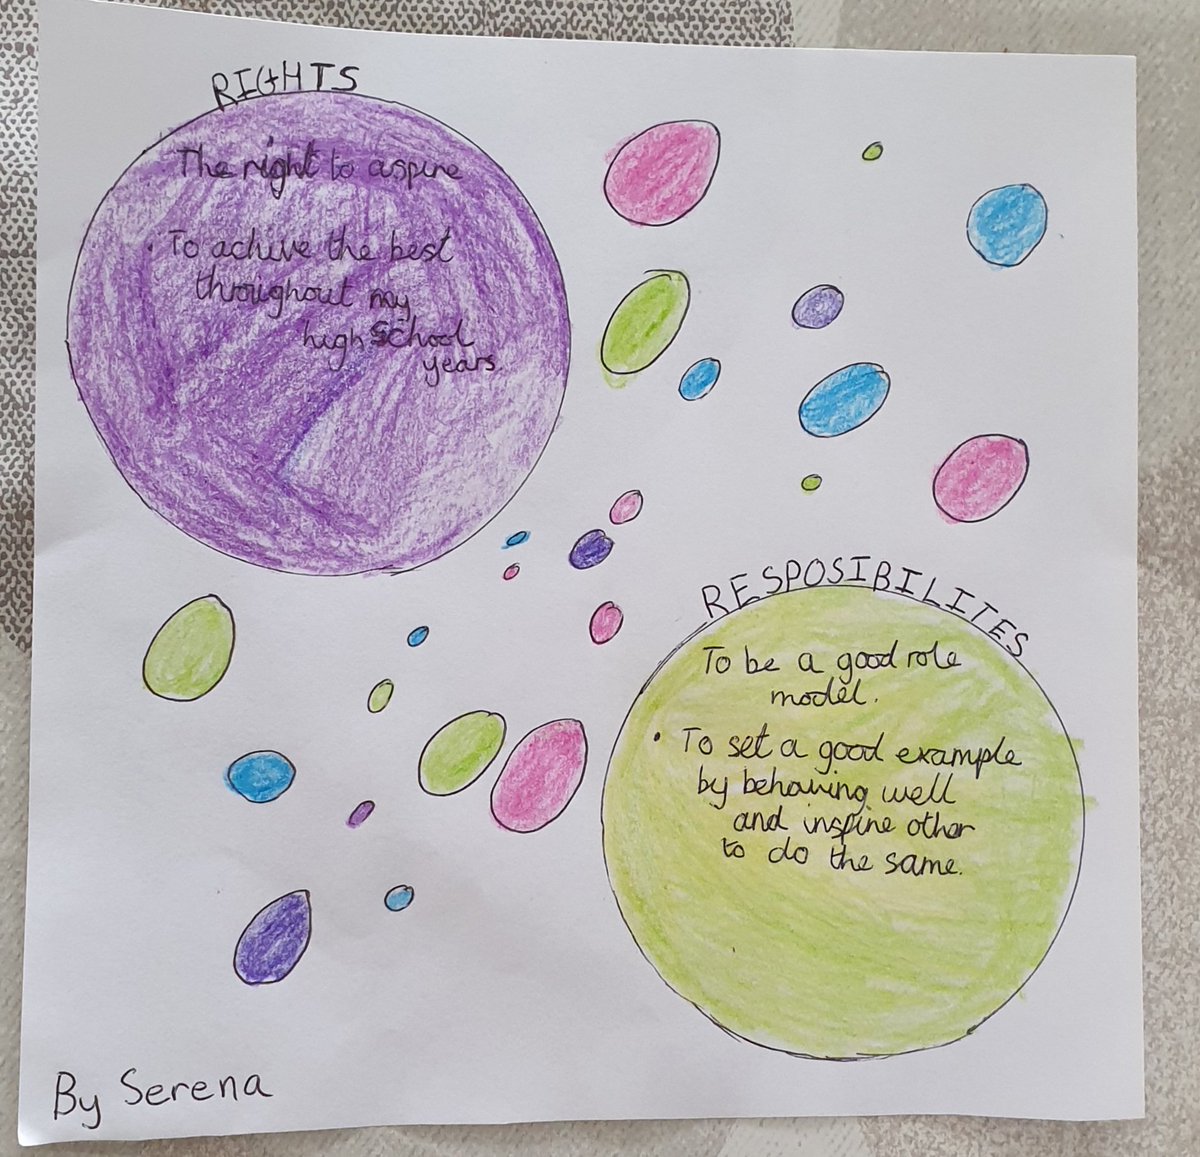 RIGHTS
The right to aspire
· To achive the best
throughout my
high school
years.
RESPOSIBILITES
To be a good role
model.
• To set a good example
by behaving well
and inspire other
to do the same.
By Serena